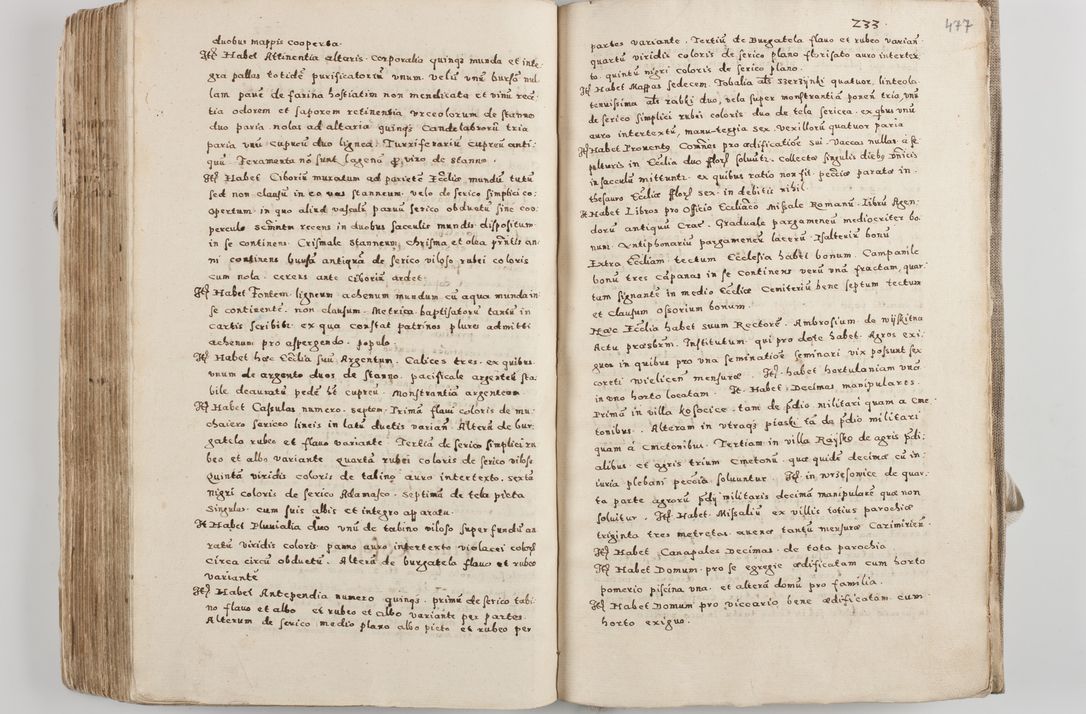 duobus mappis cooperta.
Itẽ Habet Attinentia altaris. corporalia quinqȝ munda et inte-
gra pallas totidẽ purificatoriũ vnum velũ vnũ bursã nul-
lam panẽ de farina hostiatim non mendicata et vinũ recẽ-
tia odorem et saporem retinentia vrceolorum de stanno
duo paria. nolas ad altaria quinqȝ Candelabrorũ tria
paria vnũ cupreũ duo lignea. Turriferariũ cupreũ anti-
quũ. Feramenta nõ sunt lagenã ꝓ viro de stanno.
Itẽ Habet Ciboriũ muratum ad parietẽ Ecclie mundũ tutũ
sed non clausũ in eo vas stanneum. velo de serico simplici co-
opertum in quo aliud vasculũ paruũ serico obductũ sine coo-
perculo scrmtm recens in duobus sacculis mundis dispositum
in se continens. Crismale stanneum, Chrisma et olea pñtis an-
ni continens bursã antiquã de serico viloso rubei coloris
cum nola. cereus ante Ciboriũ ardet.
Itẽ Habet Fontem ligneum achenum mundum cũ aqua munda in
se continentẽ. non clausum. Metrica baptisatorũ tantũ in
cartis scribitr. ex qua constat patrinos plures admitti
achenum pro aspergendo populo.
Itẽ Habet hæc Ecclia suũ Argentum. Calices tres. ex quibus
vnum de argento duos de stanno. pacificale argenteũ sta-
bile deauratũ pedẽ hẽ cupreũ. Monstrantia argentea.
Itẽ Habet Casulas numero. septem. Prima flaui coloris de mu-
chaiero sericeo lineis in latũ ductis varian. Alterã de bur-
gatela rubeo et flauo variante. Tertia de serico simplici ru-
beo et albo variante quarta rubei coloris de serico viloso
Quinta viridis coloris de tabino auro intertexto. sexta
nigri coloris de serico Adamasco. septima de tela picta
singulæ cum suis albis et integro apparatu.
It Habet Pluuialia duo vnũ de tabino viloso super fundũ au-
ratũ viridis coloris. panno auro intertexto violacei coloris
circa circũ obductũ. Alterũ de burgatela flauo et rubeo
variante
Itẽ Habet Antependia numero quinqȝ. primũ de serico tabi-
no flauo et albo et rubeo et albo variante per partes.
Alterum de serico medio plano albo picto et rubeo per
233. 477
partes variante. Tertiũ de Burgatela flauo et rubeo varian.
quartũ viridis coloris de serico plano florisato auro intertex-
to. quintũ nigri coloris de serico plano.
Itẽ Habet Mappas sedecem. Tobalia als szerzijnki quatuor, linteola
tenuissima als rabki duo, vela super monstrantiã ponen tria, vnũ
de serico simplici rubei coloris duo de tela sericea. ex qbus vnũ
auro intertextũ, manu-tergia sex. vexillorũ quatuor paria.
Itẽ Habet Prouentg Comnes pro ædificatiõe sui. Vaccas nullas. a se-
pulturis in Ecclia duo florẽ soluũtr. collectæ singulis diebg Dnicis
in sacculũ mittuntr. ex quibus ratio non fit. pecciæ parata in
thesauro Eccliæ florẽ sex. in debitis nihil.
It Habet Libros pro Officio Eccliaco Missale Romanũ. Librũ Agen-
dorũ antiquũ Crac. Graduale pargameneũ mediocriter bo-
num. Antiphonariũ pargameneũ lacerũ Psalteriũ bonũ
Extra Eccliam tectum Ecclesia habet bonum. Campanile
bonũ tres cãpanas in se continens verũ vnã fractam, quar-
tam signantẽ in medio Eccliæ. Cemiteriũ bene septum tectum
et clausum ossorium bonum.
Hæc Ecclia habet suum Rectorẽ. Ambrosium de wijskitna
Actu præsbrm. Institutum qui pro dote habet. Agros exi-
guos in quibus pro vna seminatiõe seminari vix possunt sex
coreti wielicen mensuræ. Itẽ habet hortulaniam vnã
in vno horto locatam. It Habet Decimas manipulares.
Prima in villa kosocice. tam de pdio militari quam a Cme-
tonibus. Alteram in vtraqȝ piaski tã de pdio militari
quam à Cmetonibus. Tertiam in villa Rajsko de agris pdi-
alibus et agris trium Cmetonũ. quæ quidẽ decimæ cũ in-
iuria plebani peccia soluuntur. Itẽ in wrsesowice de quar-
ta parte agrorũ pdij militaris decimã manipularẽ quæ non
soluitur. Itẽ Habet Missaliũ ex villis totius parochiæ
triginta tres metretas. auenæ tantũ mensuræ Cazimirien.
Itẽ Habet Canapales Decimas. de tota parochia
Itẽ Habet Domum pro se egregie ædificatam cum horto
pomerio piscina vna. et alterã domũ pro familia.
Itẽ Habet Domum pro viccario bene ædificatam cum
horto exiguo.